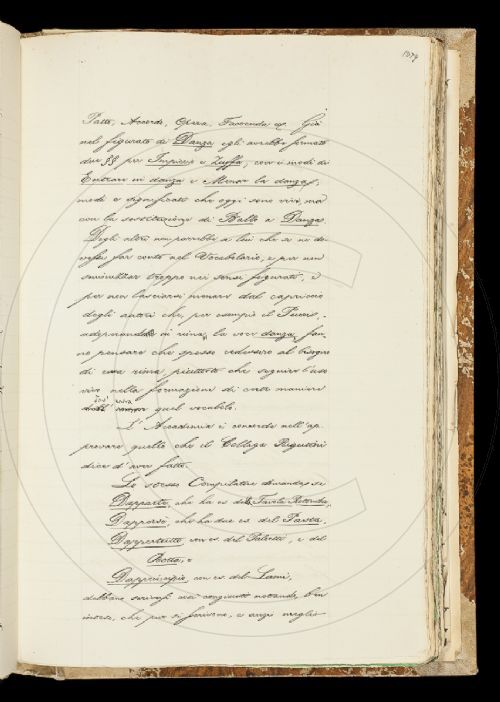 1079
Patto, Accordo, Opera, Faccenda ec. Già
nel figurato di Danza egli avrebbe formato
due §§ per Impiccio e Zuffa, con i modi di
Entrare in danza e Menar la danza,
modi e significati che oggi sono vivi, ma
con la sostituzione di Ballo a Danza.
Degli altri non parrebbe a lui che se ne do-
vesse far conto nel Vocabolario, e per non
sminuzzar troppo nei sensi figurati, e
per non lasciarsi menare dal capriccio
degli autori che, per esempio il Pucci,
adoprando in rima la voce danza, fan-
no pensare che spesso cedessero al bisogno
di essa rima piuttosto che seguire l'uso
vivo nella formazione di certe maniere
con quel vocabolo.
L'Accademia è concorde nell'ap-
provare quello che il Collega Rigutini
dice d'aver fatto.
Lo stesso Compilatore domanda se
Dapparte, che ha es. della Tavola Rotonda,
Dappoisè, che ha due es. del Pavta,
Dappertutto, con es. del e del
Botta, e
Dapprincipio, con es. del Lami,
debbano scriversi così congiunti notando, ben
intesi, che può si scrivono, e anzi meglio